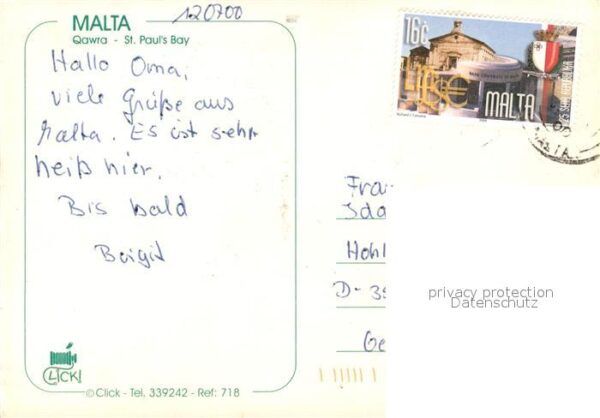 120700
MALTA
Qawra - St. Paul's Bay
Hallo Oma,
viele Grüße aus
Malta. Es ist sehr
heiß hier.
Bis bald
Birgit
CLICK!
© Click - Tel. 339242 - Ref: 718
16c
MALTA
Fra
Ida
Hohl
D-35
Ge
privacy protection
Datenschutz